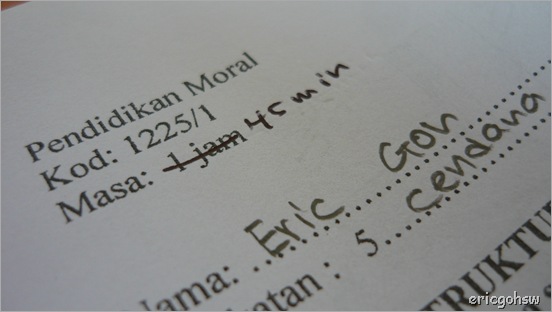 Pendidikan Moral
Kod: 1225/1
Masa: 1 jam 45 min
Nama: Eric Goh
atan : 5 Cendana
TRUKTU
ericgohsw